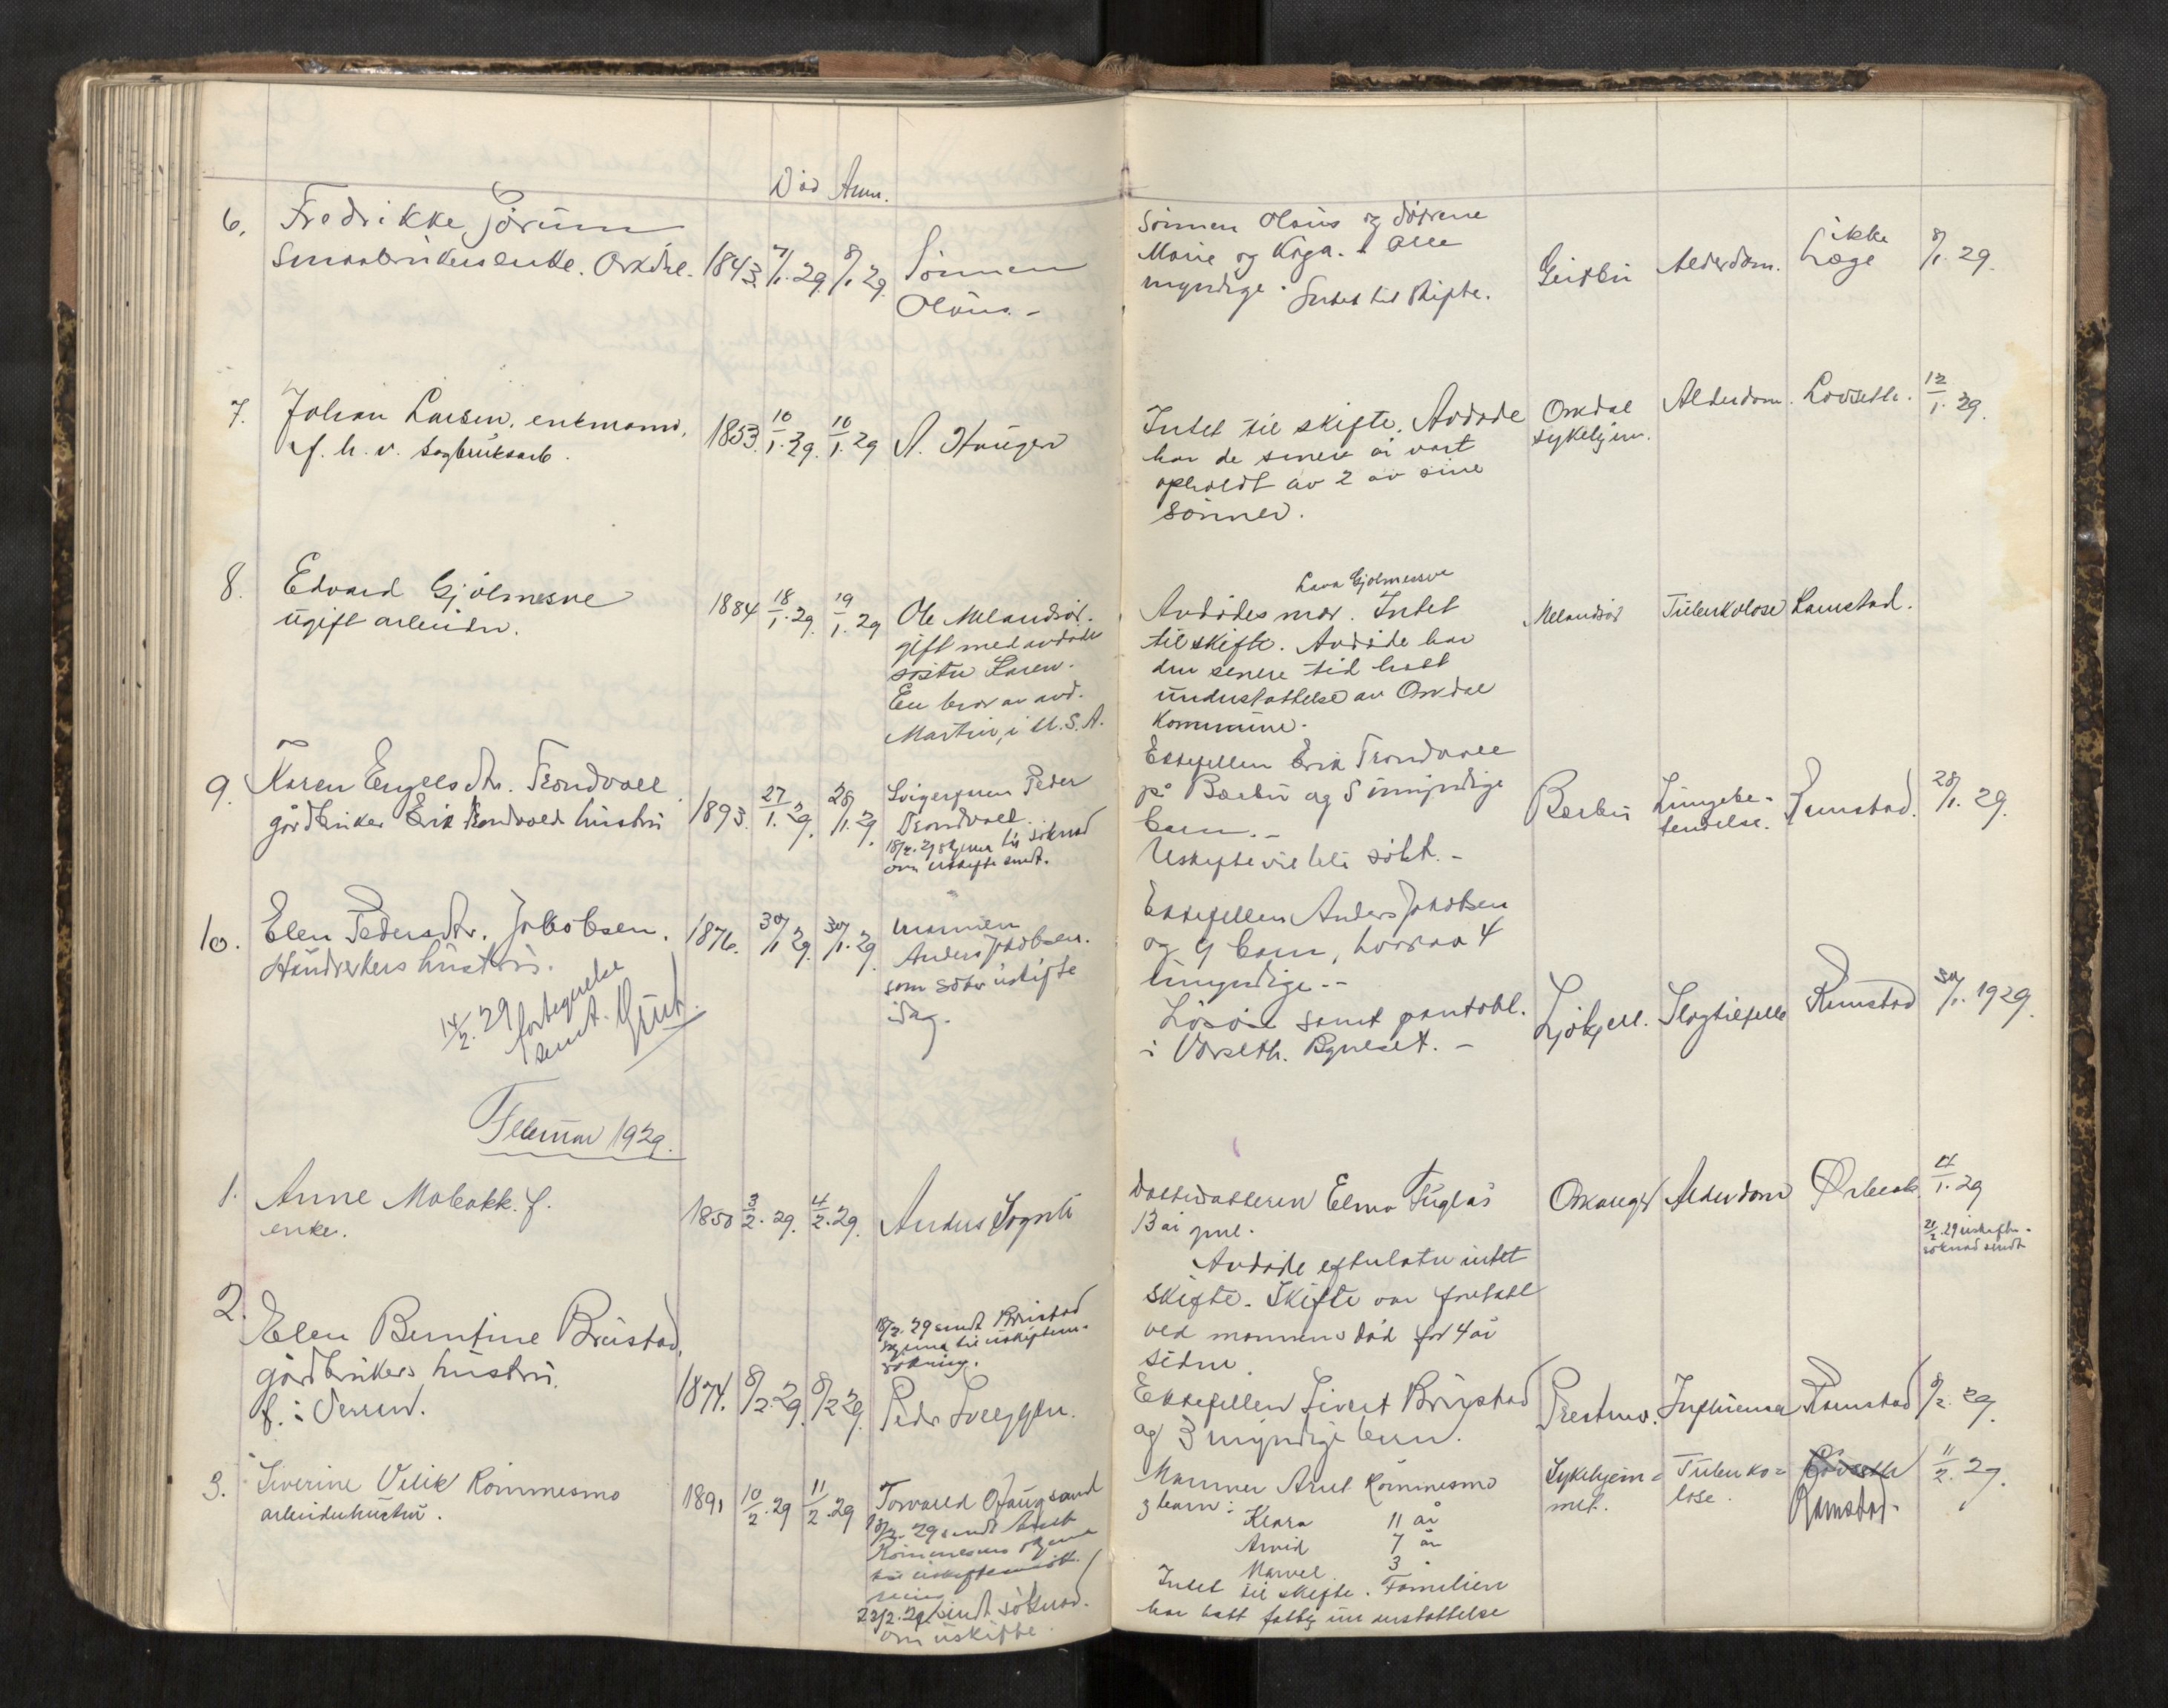 Död Anm.
6. Fredrikke Jörum
Smaabrukerenke. Orkdal. 1843. 7/1.29. 8/1 29. Sönnen
Olaus.-
Sönnen Olaus og dötrene
Marie og Kaga. Alle
myndige. Intet til skifte.
Geitbu Alderdom. ikke
Læge 8/1. 29.
7. Johan Larsen, enkemand,
f. h. v. sagbruksarb. 1853. 10/1.29. 10/1.29 A. Haugen
Intet til skifte. Avdöde
har de senere år vært
opholdt av 2 av sine
sönner.
Orkdal
sykehjem. Alderdom. Lovseth. 12/1.29.
8. Edvard Gjölmesne
ugift arbeider. 1884 18/1.29. 19/1.29 Ole Melandsö.
gift med avdöde
söster Karen.
En bror av avd.
Martin, i U.S.A.
Lava Gjölmesne
Avdödes mor. Intet
til skifte. Avdöde har
den senere tid hatt
understöttelse av Orkdal
Kommune.
Melandsö Tuberkulose Ramstad.
9. Karen Engelsdtr. Trondvoll
gårdbruker Erik Trondvolds hustru 1893. 27/1.29. 28/1.29. Svigersönn Peder
Trondvoll.
18/2.29 skjema til söknad
om uskifte sendt.
Ektefellen Erik Trondvoll
på Bærbu og 5 umyndige
barn.-
Uskifte vil bli sökt.-
Bærbu Lungebe-
tendelse. Ramstad. 28/1.29.
10. Elen Pedersdtr. Jakobsen.
Håndverkers hustru. 1876. 30/1 29. 30/1.29. mannen
Anders Jakobsen.
som söker uskifte
idag.
14/2.29 fortegnelse
sendt.
Ektefellen Anders Jakobsen
og 9 barn, hvorav 4
umyndige.--
Lösöre samt pantobl.
i Vorseth. Byneset.-
Ljökjell. Slagtilfelle Ramstad 30/1.1929.
Februar 1929.
1. Anne Mobakk. f.
enke. 1850 3/2.29. 4/2.29. Anders Sognli
Datterdatteren Elma Fuglås
13 år gml.
Avdöde efterlater intet
skifte. Skifte var foretatt
ved mannens död for 4 år
siden.
Orkanger Alderdom Ørbeck 4/1.29
21/2.29 uskifte-
söknad sendt
2. Elen Berntine Brustad,
gårdbrukers hustru.
f. i Verran. 1874. 8/2.29. 8/2 29. Peder Sveggen.
18/2.29 sendt Brustad
skjema til uskiftean-
sökning.
Ektefellen Sivert Brustad
og 3 myndige barn.
Prestmo. Influensa Ramstad 8/2.29.
3. Siverine Vilik Rommesmo
arbeiderhustru. 1891 10/2.29 11/2.29 Torvald Ofaugsand
18/2.29 sendt Arnt
Rommesmo skjema
til uskifte
22/2.29 sendt söknad
om uskifte.
Mannen Arnt Rommesmo
3 barn:
Klara 11 år
Arvid 7 år
Marvel 3 "
Intet til skifte. Familien
har hatt fattig understöttelse
Sykehjem-
met. Tuberku-
lose. Lovseth
Ramstad. 11/2.29.